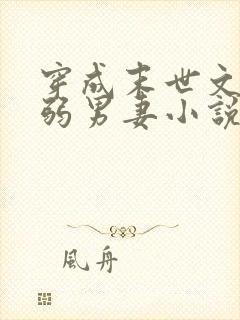 穿成末世文
弱男妻小說
風舟